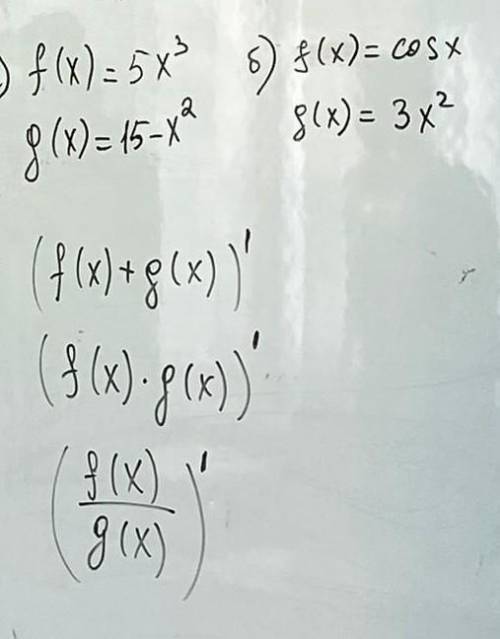 ) f(x) = 5x³
g(x) = 15-x²
б) f(x) = cosx
g(x) = 3x²
(f(x)+g(x))'
(f(x)·g(x))'
(f(x)/g(x))'